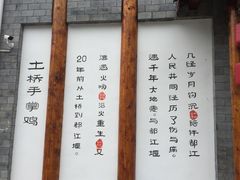 土桥手掌鸡
20年前从土桥到都江堰。
遭遇火吻浴火重生又
遇千年大地震。与都江堰
人民共同经历了伤与痛。
几经岁月钩沉始终伴都江